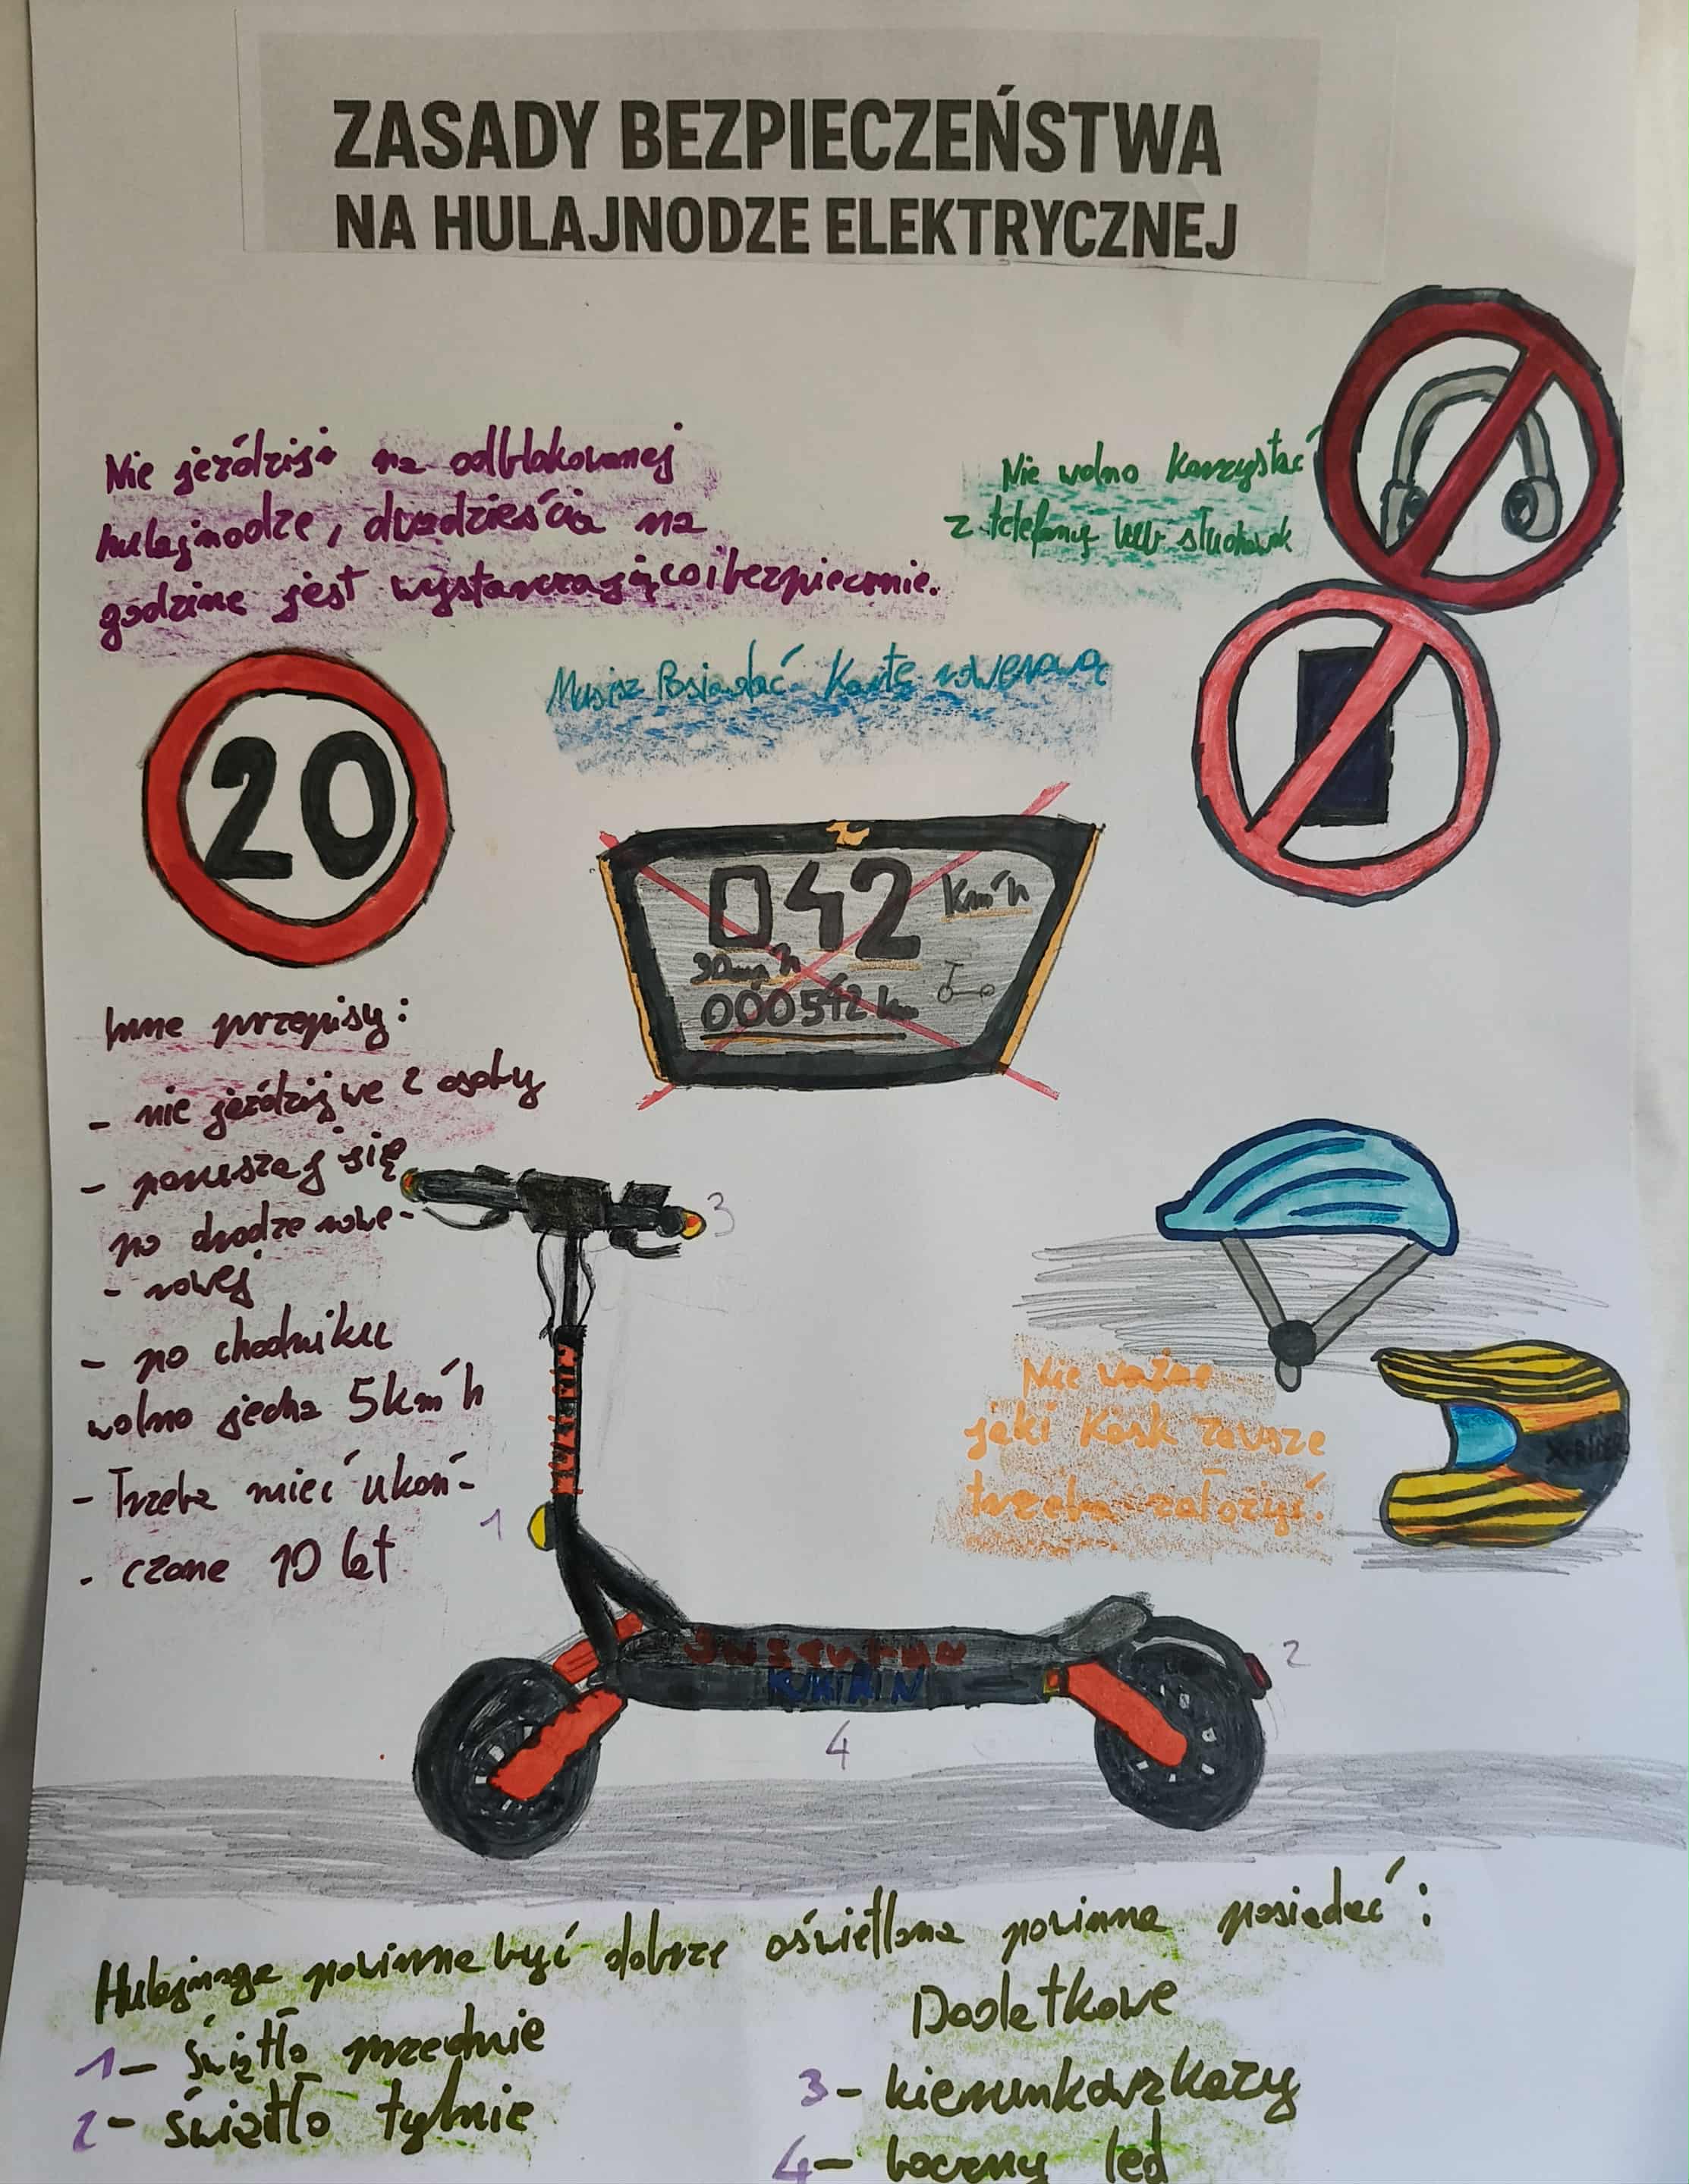 ZASADY BEZPIECZEŃSTWA
NA HULAJNODZE ELEKTRYCZNEJ
Nie jeździj na odblokowanej
hulajnodze, dwadzieścia na
godzine jest wystarczająco i bezpiecznie.
Nie wolno korzystać
z telefonu lub słuchawek
Musisz Posiadać Kartę rowerową
20
042 km/h
30mp/h
000542 km
Inne przepisy:
- nie jeździj we 2 osoby
- poruszaj się
po drodze rowe-
- rowej
- po chodniku
wolno jecha 5km/h
- Trzeba mieć ukoń-
- czone 10 lat
3
Nie ważne
jaki Kask zawsze
trzeba założyć.
X-RIDER
1
2
KUKIRIN
4
Hulajnoga powinna być dobrze oświetlona powinna posiadać:
1- światło przednie
2- światło tylnie
Dodatkowe
3- kierunkowskazy
4- boczny led